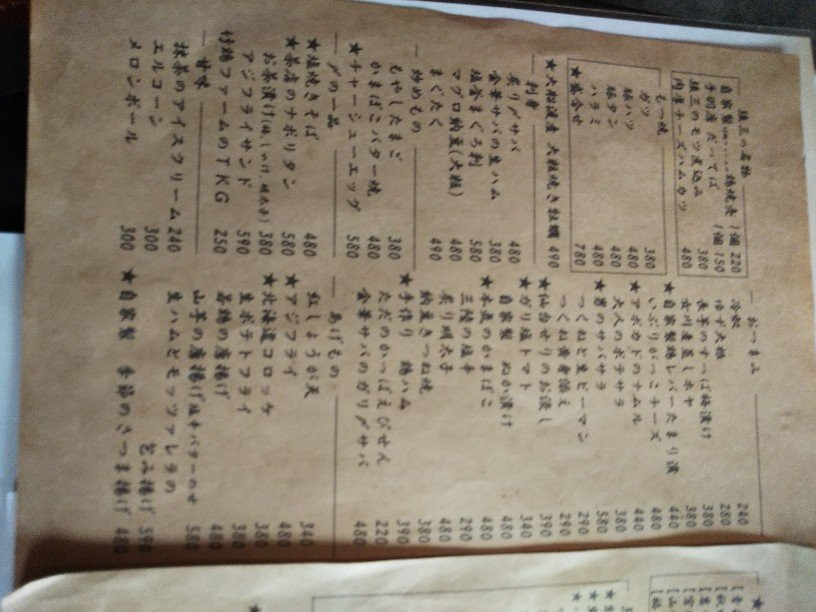 の名物
自家製 鶏焼売 1個 220
手羽唐 だってば 1個 150
のモツ煮込み 380
肉厚チーズハムカツ 480
もつ焼
ガツ 380
豚ハツ 480
豚タン 480
ハラミ 480
★盛合せ 780
★大船渡産 大粒焼き牡蠣 490
刺身
炙り〆サバ 480
金華サバの生ハム 380
塩釜まぐろ刺 580
マグロ納豆(大粒) 480
まぐたく 490
炒めもの
もやしたまご 380
かまぼこバター焼 480
★チャーシューエッグ 580
〆の一品
★塩焼きそば 480
★茶店のナポリタン 580
お茶漬け(梅、しゃけ、明太子) 380
アジフライサンド 590
竹鶏ファームのTKG 250
甘味
抹茶のアイスクリーム 240
エルコーン 300
メロンボール 300
おつまみ
冷奴 240
ゆず大根 280
長芋のすっぱ梅漬け 380
女川産蒸しホヤ 380
★自家製鶏レバーたまり漬 440
いぶりがっこチーズ 480
★アボカドのナムル 440
大人のポテサラ 380
★男のサバサラ 580
つくねと生ピーマン 290
つくね黄身添え 290
★仙台せりのお浸し 390
★ガリ塩トマト 340
自家製 ぬか漬け 480
★本庄のかまぼこ 480
三陸の塩辛 290
炙り明太子 480
納豆きつね焼 380
★手作り 鶏ハム 390
ただのかっぱえびせん 220
金華サバのガリ〆サバ 480
あげもの
紅しょうが天 340
★アジフライ 480
★北海道コロッケ 380
生ポテトフライ 380
若鶏の唐揚げ 480
山芋の唐揚げ塩辛バターのせ 580
生ハムとモッツァレラの
包み揚げ 590
★自家製 季節のさつま揚げ 440